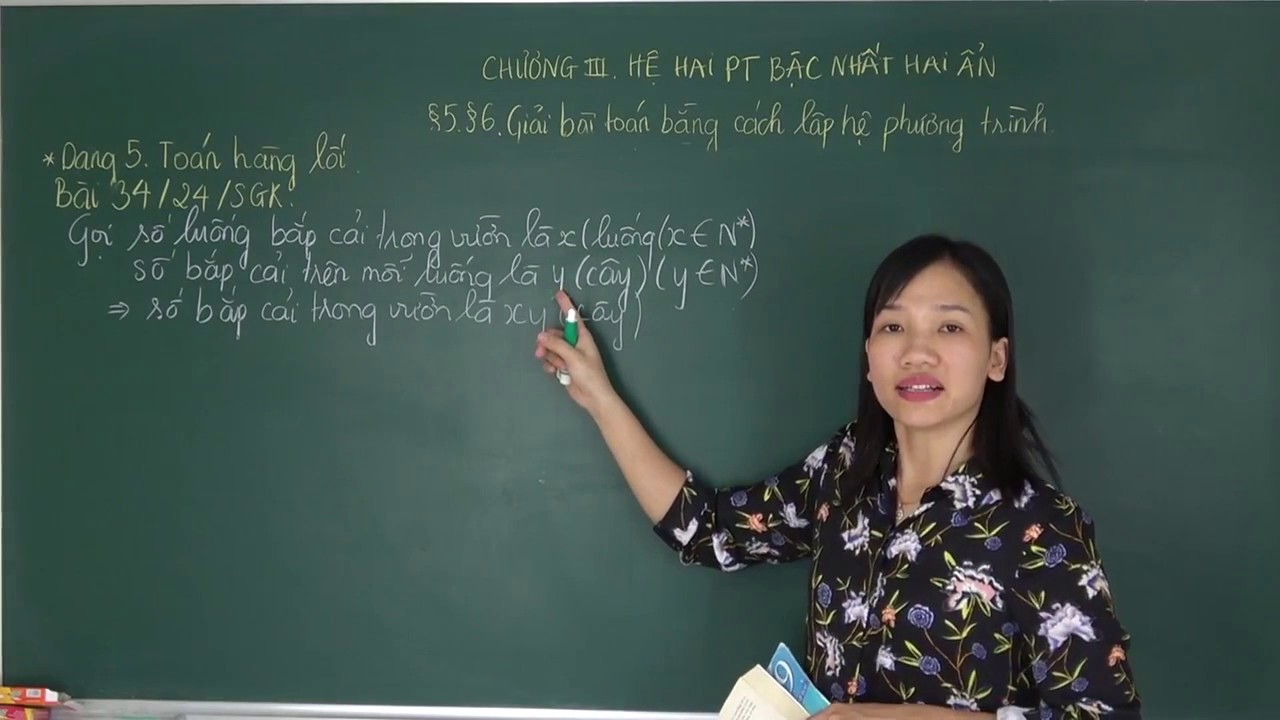 CHƯƠNG III. HỆ HAI PT BẬC NHẤT HAI ẨN
§5.§6. Giải bài toán bằng cách lập hệ phương trình.
* Dạng 5. Toán hàng lối.
Bài 34/24/SGK.
Gọi số luống bắp cải trong vườn là x (luống (x ∈ N*)
số bắp cải trên mỗi luống là y (cây) (y ∈ N*)
⇒ số bắp cải trong vườn là xy (cây)
9